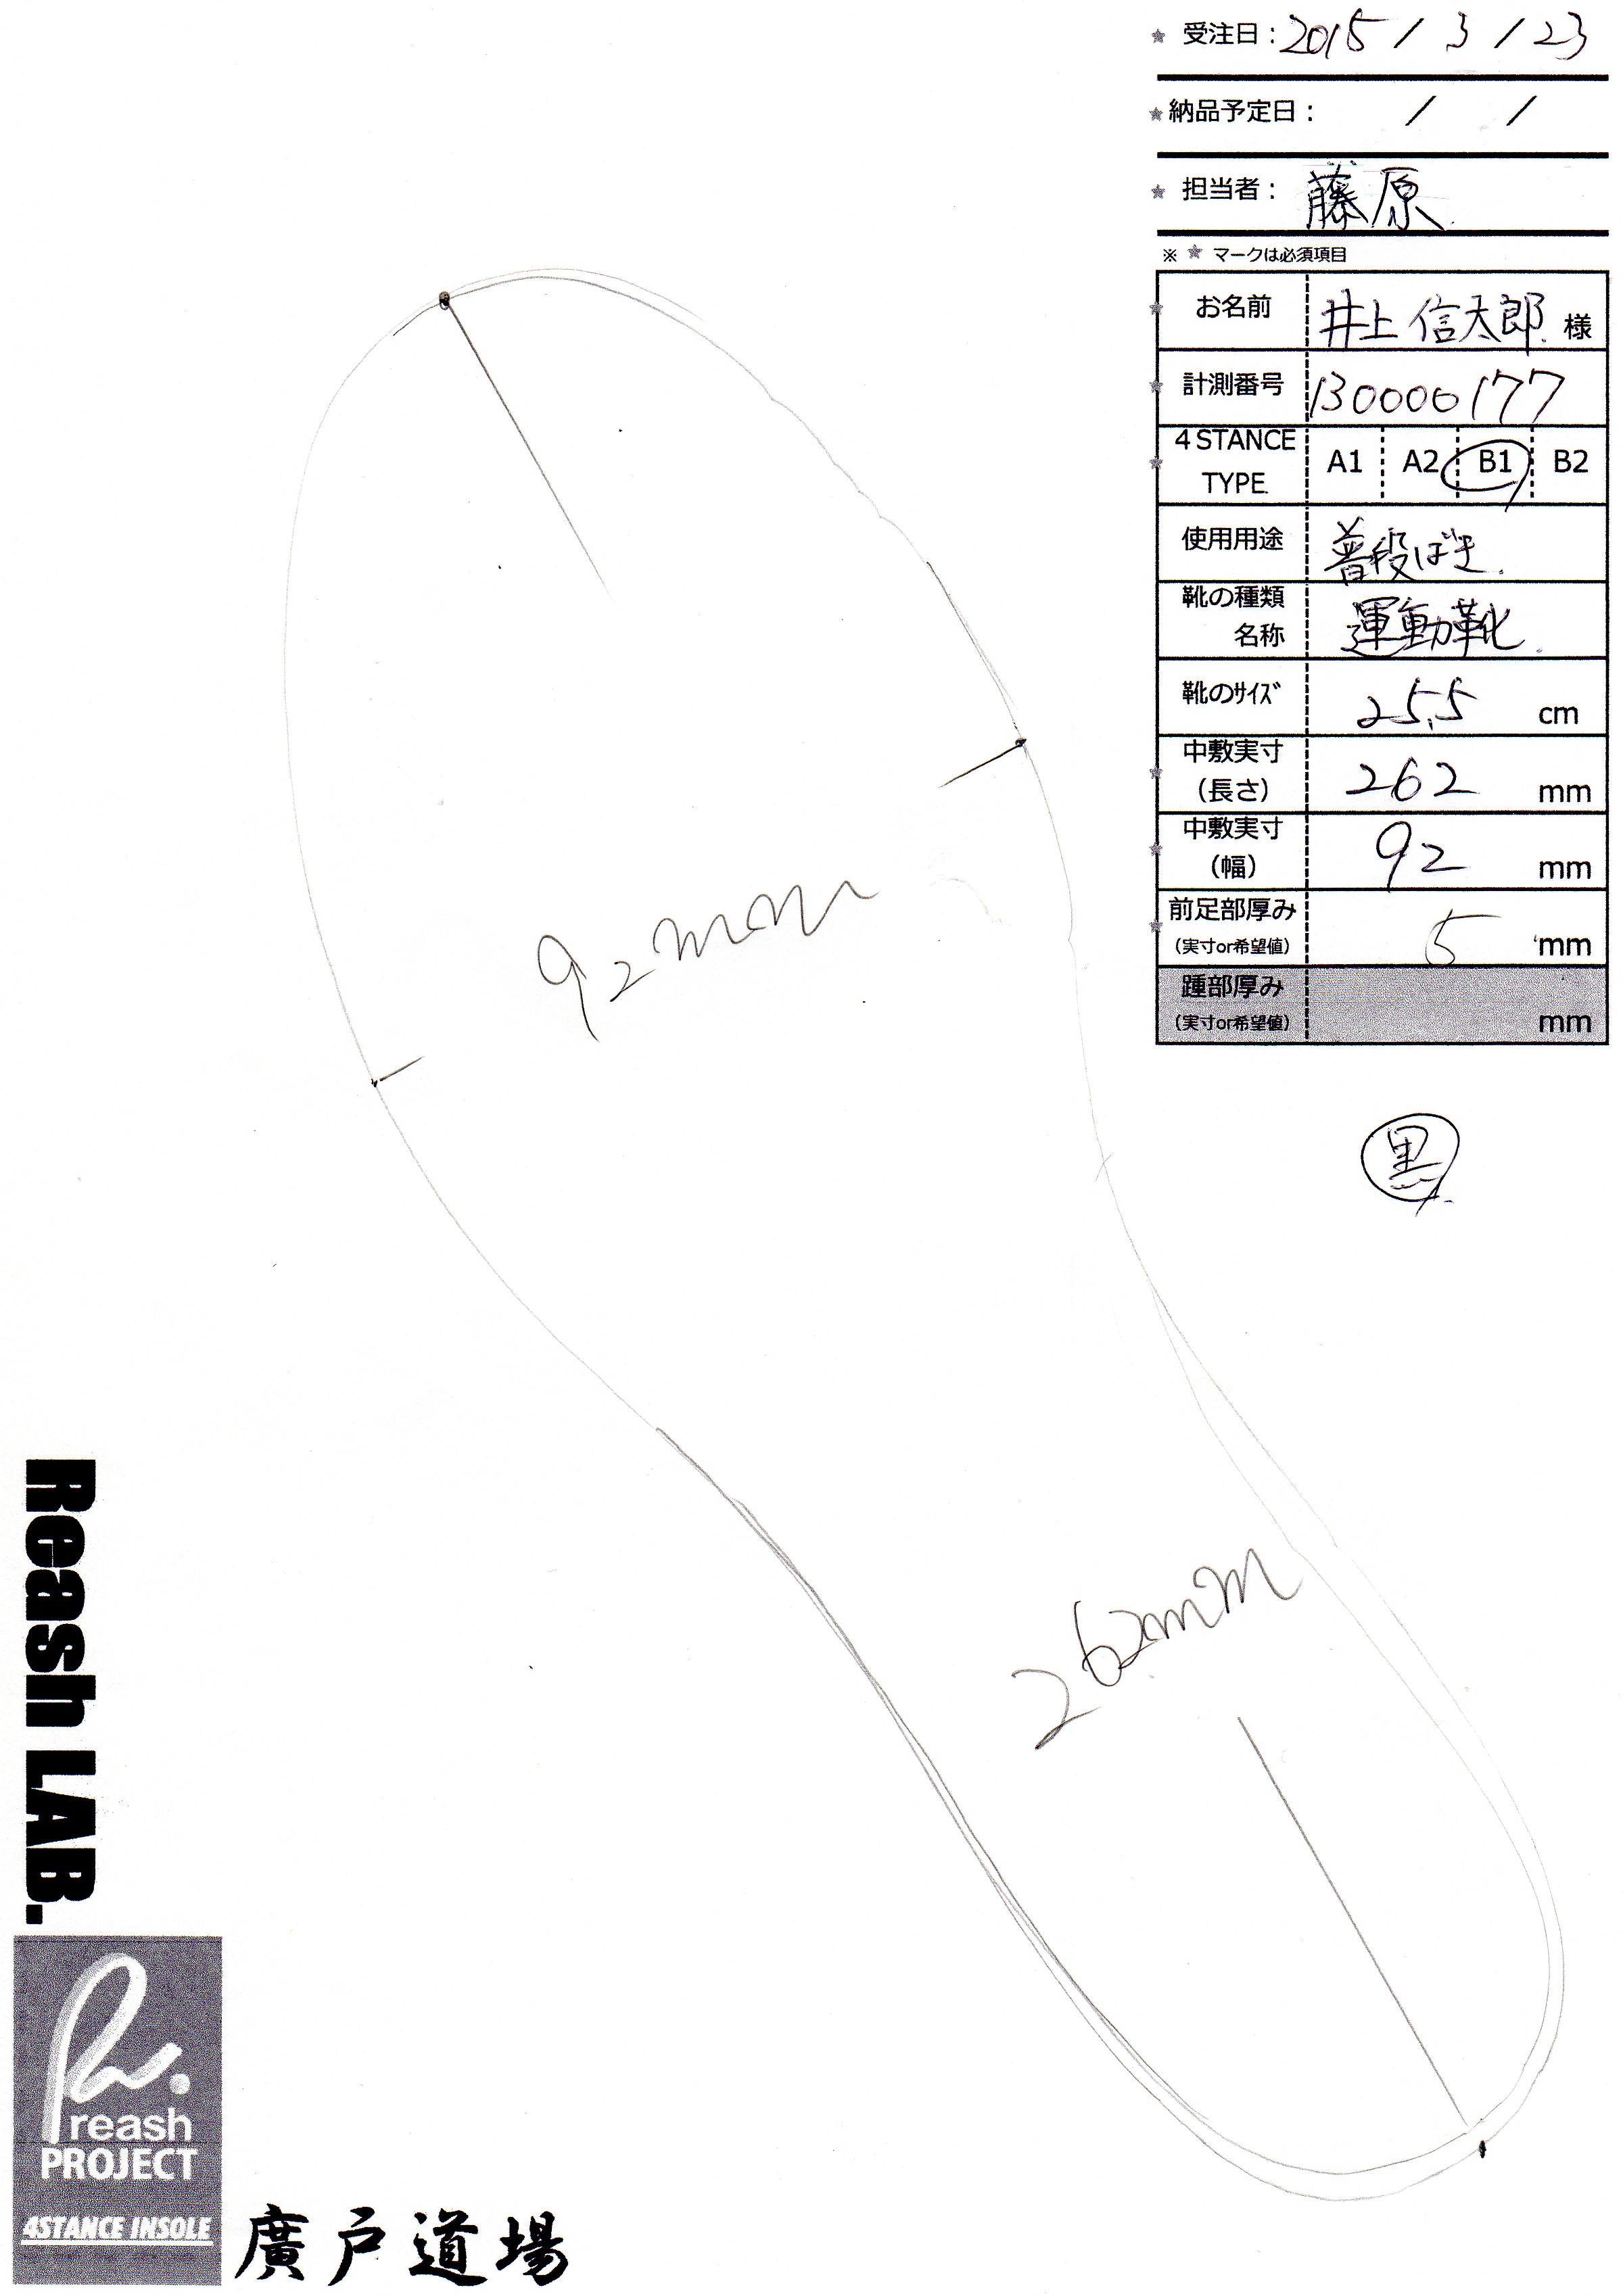 ★ 受注日：2015 / 3 / 23
★ 納品予定日： / /
★ 担当者： 藤原
※ ★ マークは必須項目
★ お名前 井上 信太郎 様
★ 計測番号 130000177
★ 4 STANCE TYPE. A1 A2 B1 B2
使用用途 普段ばき.
靴の種類 名称 運動靴.
靴のｻｲｽﾞ 25.5 cm
★ 中敷実寸 (長さ) 262 mm
★ 中敷実寸 (幅) 92 mm
★ 前足部厚み (実寸or希望値) 5 mm
踵部厚み (実寸or希望値) mm
黒
92mm
262mm
Reash LAB.
R.
reash
PROJECT
4STANCE INSOLE
廣戸道場